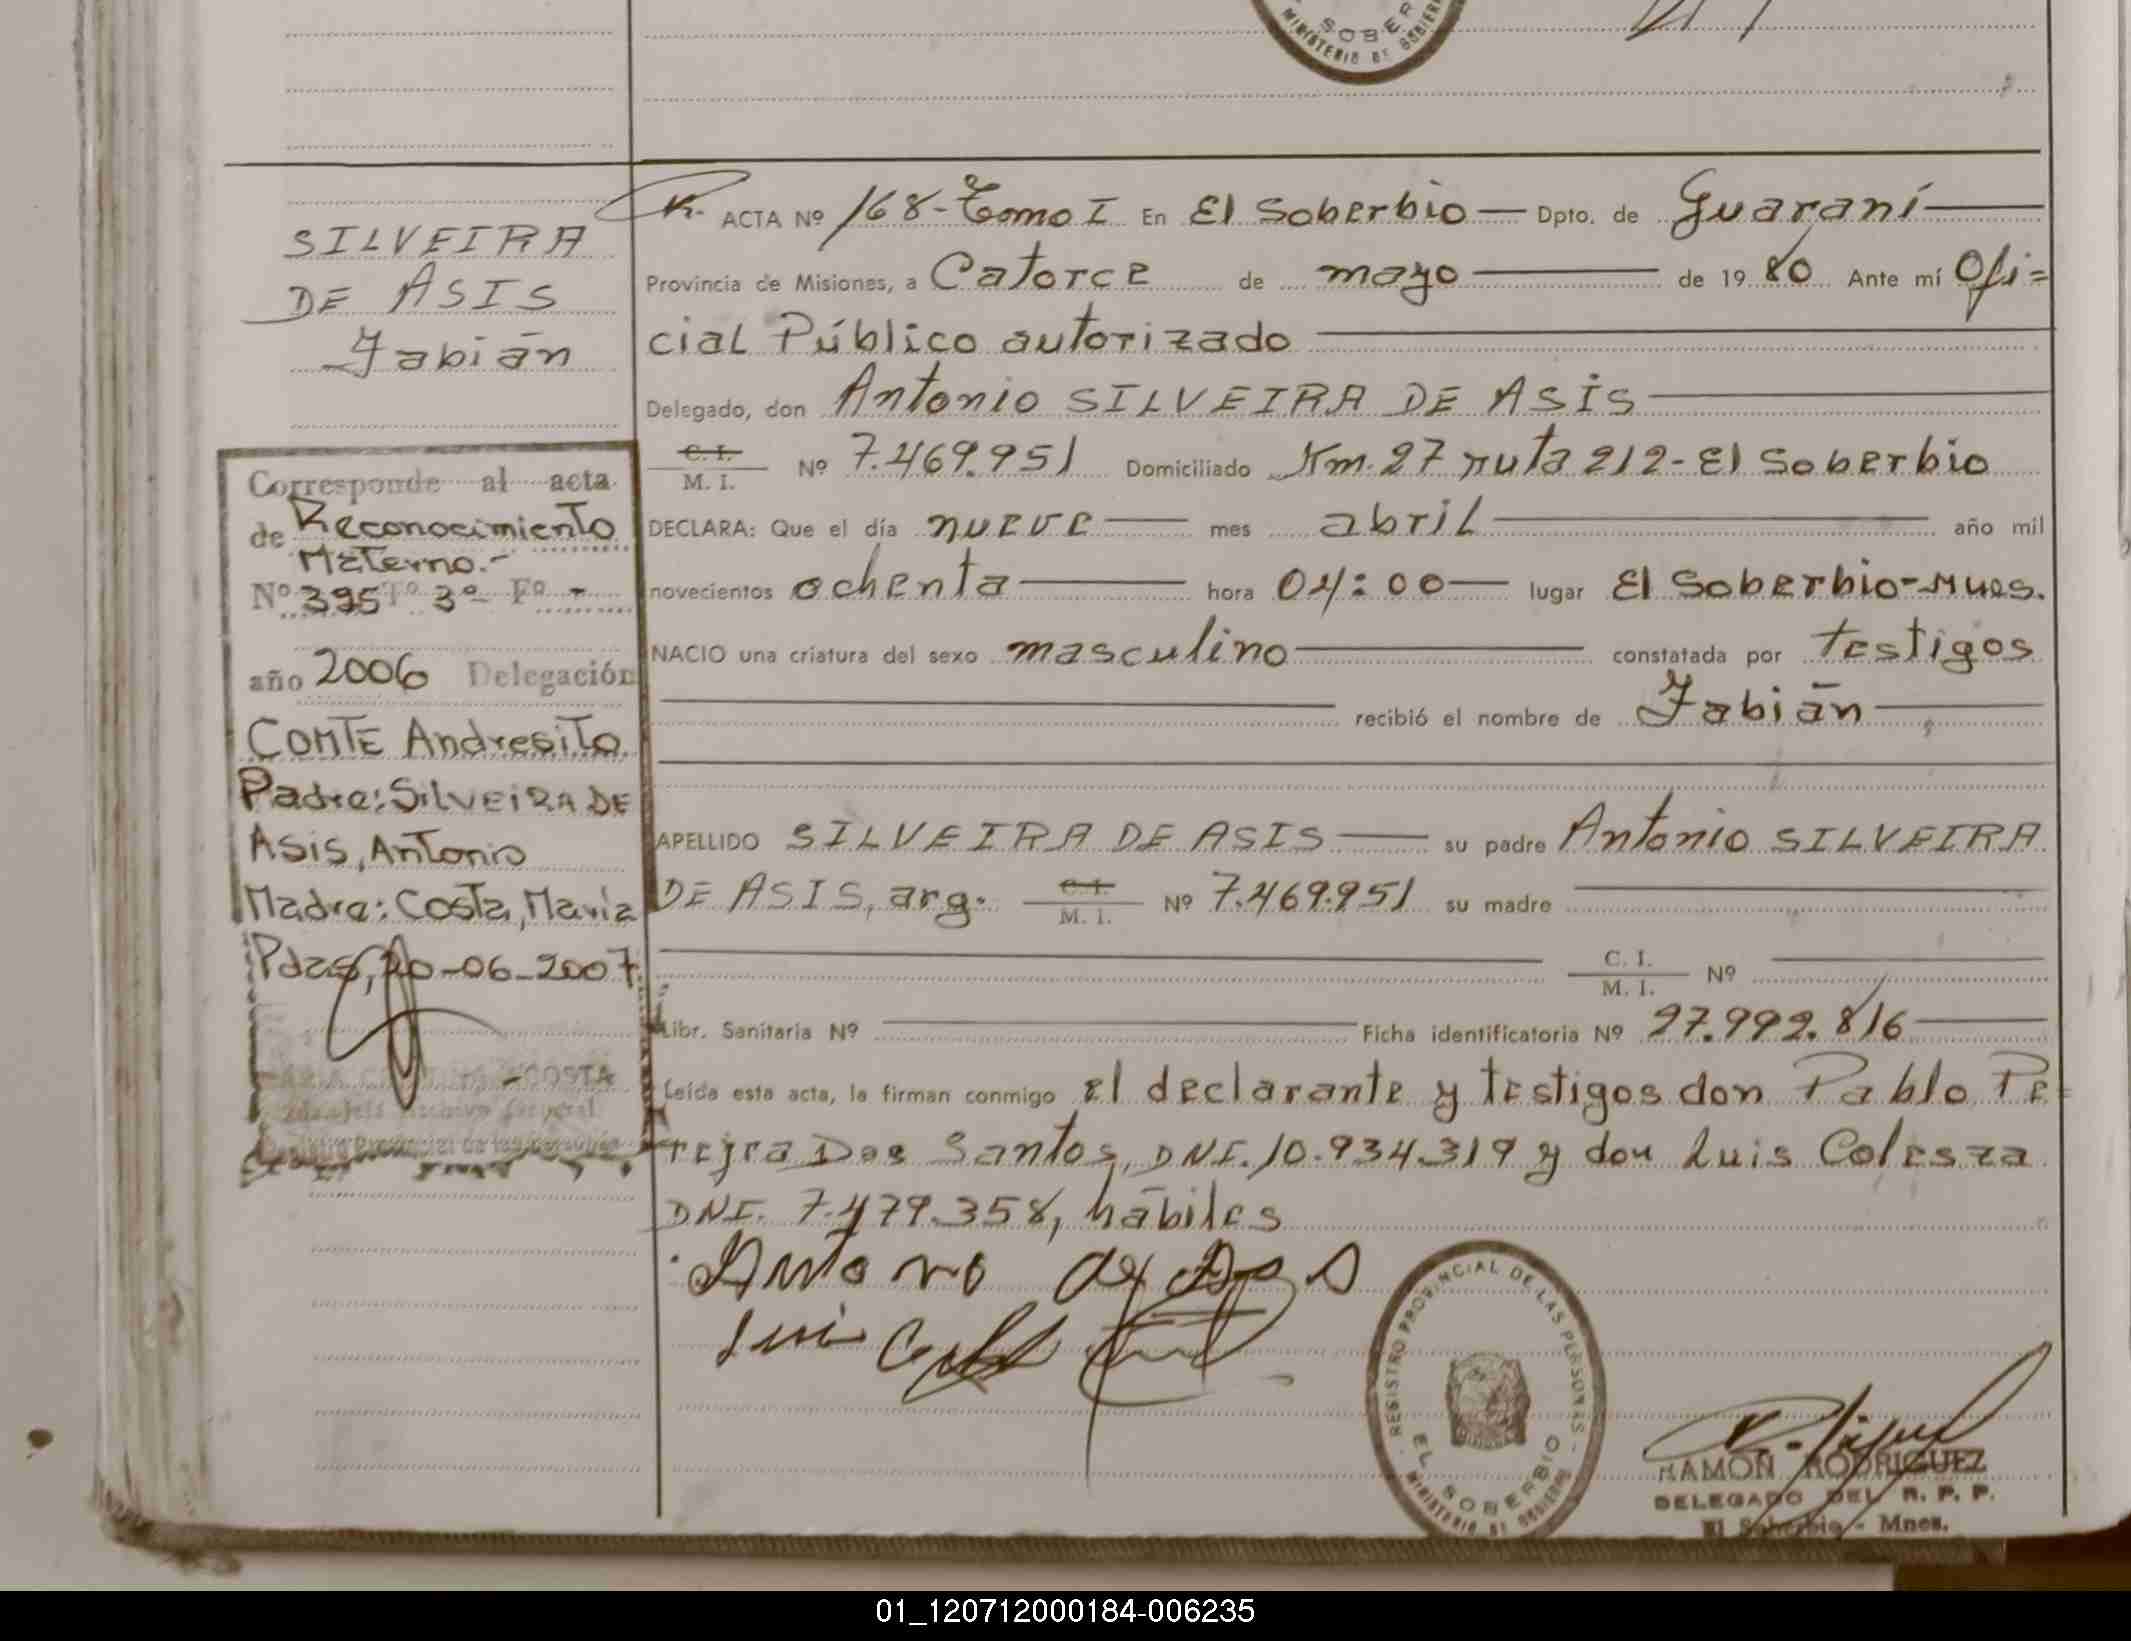 SOBER
MINISTERIO DE GOBIER
SILVEIRA
DE ASIS
Fabián
Corresponde al acta
de Reconocimiento
Materno.-
Nº 395 Tº 3º Fº -
año 2006 Delegación
COMTE Andresito
Padre: SILVEIRA DE
Asis, Antonio
Madre: Costa, María
Pdas, 20-06-2007
ACOSTA
Archivo General
Registro Provincial de las Personas
ACTA Nº 168-Tomo I En El Soberbio — Dpto. de Guaraní
Provincia de Misiones, a Catorce de mayo de 1980 Ante mí Ofi=
cial Público autorizado
Delegado, don Antonio SILVEIRA DE ASIS
C. I.
M. I. Nº 7.469.951 Domiciliado Km. 27 ruta 212-El Soberbio
DECLARA: Que el día nueve mes abril año mil
novecientos ochenta hora 04:00 lugar El Soberbio-Mnes.
NACIO una criatura del sexo masculino constatada por testigos
recibió el nombre de Fabián
APELLIDO SILVEIRA DE ASIS su padre Antonio SILVEIRA
DE ASIS, arg. C. I. M. I. Nº 7.469.951 su madre
C. I.
M. I. Nº
Libr. Sanitaria Nº Ficha identificatoria Nº 27.992.816
Leída esta acta, la firman conmigo el declarante y testigos don Pablo Pe=
reira Dos Santos, DNI. 10.934.319 y don Luis Colesza
DNI. 7.479.358, hábiles
Antonio de Asis
Luis
REGISTRO PROVINCIAL DE LAS PERSONAS -
EL SOBERBIO
MINISTERIO DE GOBIERNO
RAMON RODRIGUEZ
DELEGADO DEL R. P. P.
El Soberbio - Mnes.
01_120712000184-006235